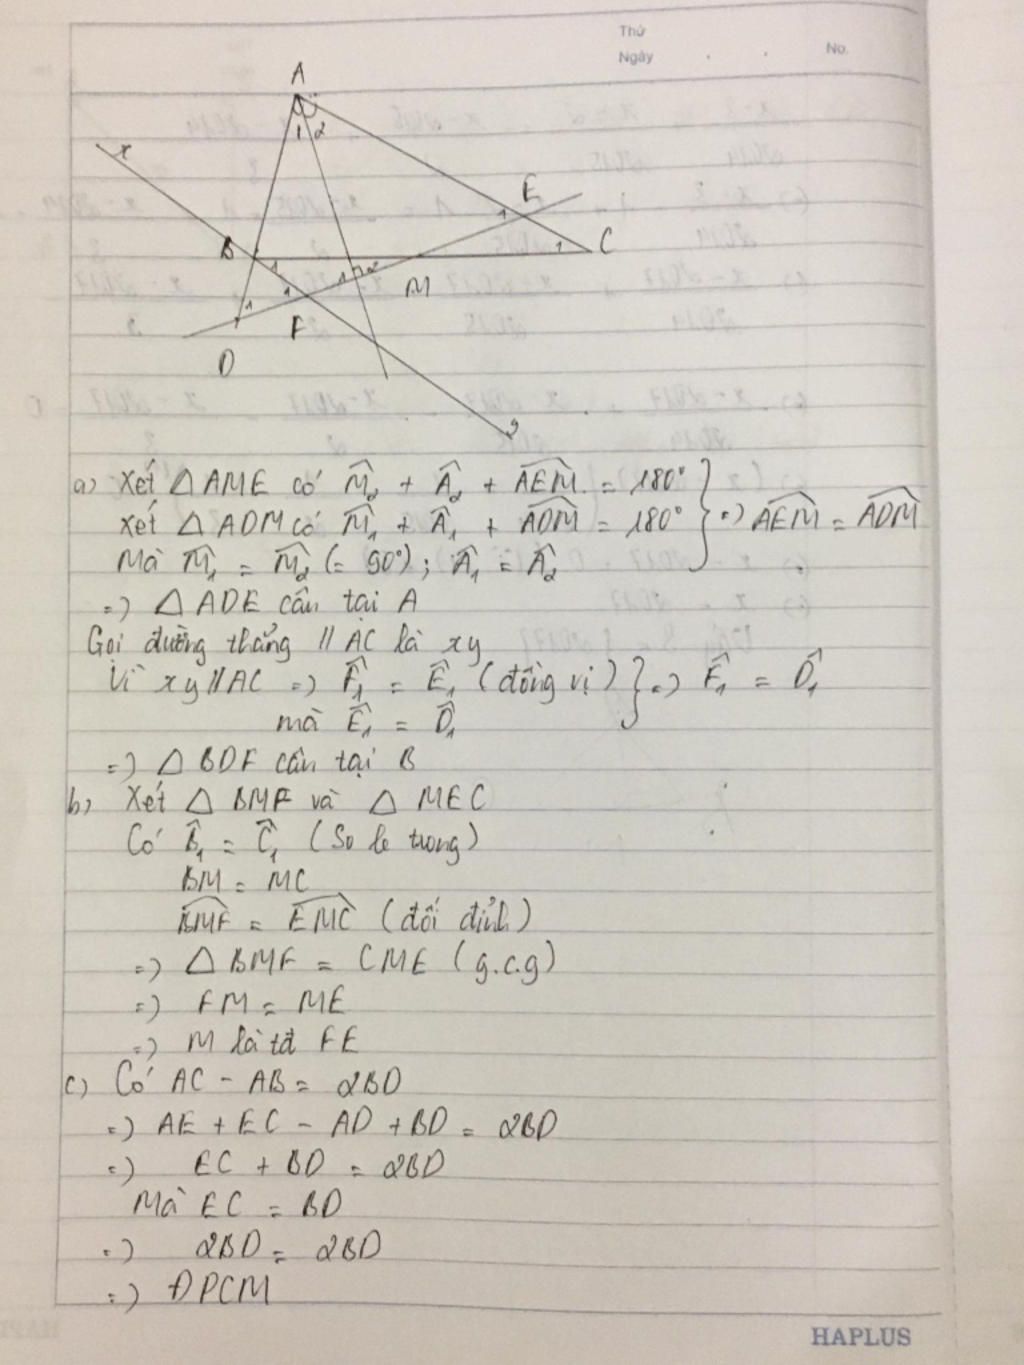 Thứ
Ngày
No.
A
1 2
x
E
1
B
1
1
C
1 2
M
1
1
F
D
y
a) Xét △AME có M̂₂ + Â₂ + AEM̂ = 180°
Xét △ADM có M̂₁ + Â₁ + ADM̂ = 180° } => AEM̂ = ADM̂
Mà M̂₁ = M̂₂ (= 90°); Â₁ = Â₂
=> △ADE cân tại A
Gọi đường thẳng // AC là xy
Vì xy // AC => F̂₁ = Ê₁ (đồng vị) } => F̂₁ = D̂₁
mà Ê₁ = D̂₁
=> △BDF cân tại B
b) Xét △BMF và △MEC
Có B̂₁ = Ĉ₁ (So le trong)
BM = MC
BMF̂ = EMĈ (đối đỉnh)
=> △BMF = CME (g.c.g)
=> FM = ME
=> M là tđ FE
c) Có AC - AB = 2BD
=> AE + EC - AD + BD = 2BD
=> EC + BD = 2BD
Mà EC = BD
=> 2BD = 2BD
=> ĐPCM
HAPLUS